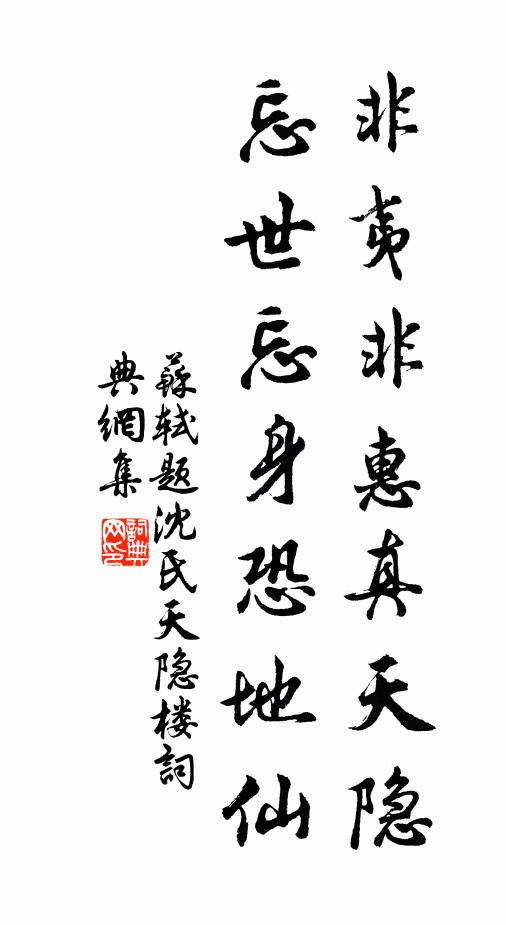 非夷非惠真天隐
忘世忘身恐地仙
蘇軾题沈氏天隐楼詞
典網集
詞典
网印